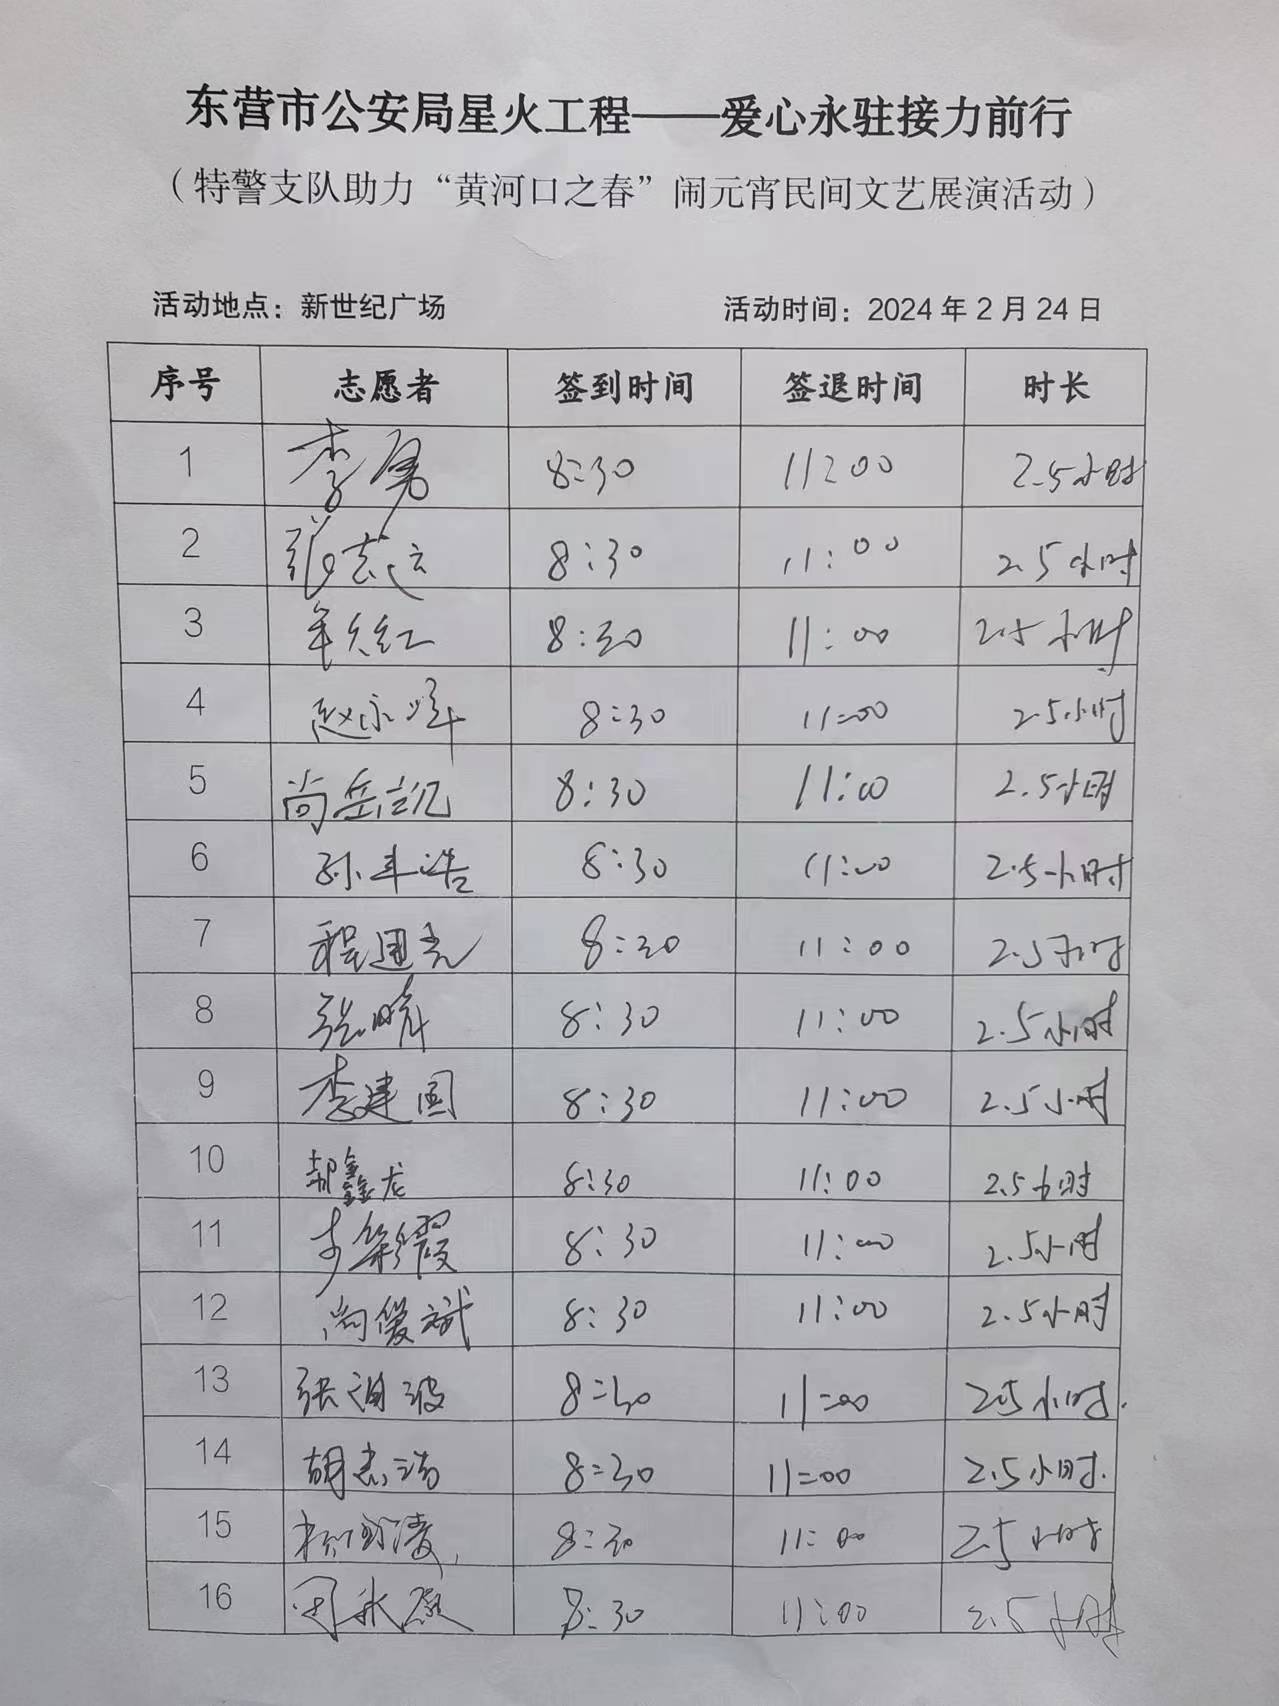 东营市公安局星火工程——爱心永驻接力前行
（特警支队助力“黄河口之春”闹元宵民间文艺展演活动）
活动地点：新世纪广场 活动时间：2024年2月24日
序号 志愿者 签到时间 签退时间 时长
1 李勇 8:30 11:00 2.5小时
2 8:30 11:00 2.5小时
3 8:30 11:00 2.5小时
4 赵永峰 8:30 11:00 2.5小时
5 尚岳 8:30 11:00 2.5小时
6 孙丰浩 8:30 11:00 2.5小时
7 程国光 8:30 11:00 2.5小时
8 张晓 8:30 11:00 2.5小时
9 李建国 8:30 11:00 2.5小时
10 郝鑫龙 8:30 11:00 2.5小时
11 8:30 11:00 2.5小时
12 尚俊斌 8:30 11:00 2.5小时
13 张海波 8:30 11:00 2.5小时
14 胡志 8:30 11:00 2.5小时
15 8:30 11:00 2.5小时
16 8:30 11:00 2.5小时